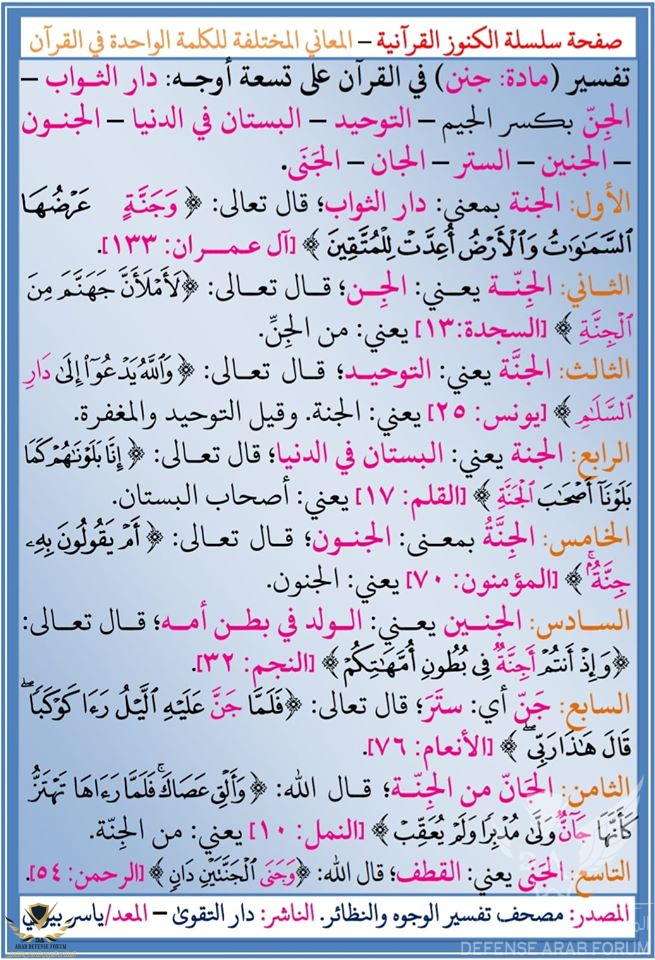 صفحة سلسلة الكنوز القرآنية – المعاني المختلفة للكلمة الواحدة في القرآن
تفسير (مادة: جنن) في القرآن على تسعة أوجه: دار الثواب –
الجِنّ بكسر الجيم – التوحيد – البستان في الدنيا – الجنون
– الجنين – الستر – الجان – الجَنَى.
الأول: الجنة بمعني: دار الثواب؛ قال تعالى: ﴿ وَجَنَّةٍ عَرْضُهَا
السَّمَاوَاتُ وَالْأَرْضُ أُعِدَّتْ لِلْمُتَّقِينَ ﴾ [آل عمران: ١٣٣].
الثاني: الجِنّة يعني: الجِن؛ قال تعالى: ﴿لَأَمْلَأَنَّ جَهَنَّمَ مِنَ
الْجِنَّةِ ﴾ [السجدة:١٣] يعني: من الجِنِّ.
الثالث: الجنَّة يعني: التوحيد؛ قال تعالى: ﴿وَاللَّهُ يَدْعُوٓا۟ إِلَىٰ دَارِ
السَّلَامِ ﴾ [يونس: ٢٥] يعني: الجنة. وقيل التوحيد والمغفرة.
الرابع: الجنة يعني: البستان في الدنيا؛ قال تعالى: ﴿ إِنَّا بَلَوْنَاهُمْ كَمَا
بَلَوْنَا أَصْحَابَ الْجَنَّةِ ﴾ [القلم: ١٧] يعني: أصحاب البستان.
الخامس: الجِنَّةُ بمعنى: الجنون؛ قال تعالى: ﴿ أَمْ يَقُولُونَ بِهِۦ
جِنَّةٌ ۚ ﴾ [المؤمنون: ٧٠] يعني: الجنون.
السادس: الجنين يعني: الولد في بطن أمه؛ قال تعالى:
﴿وَإِذْ أَنتُمْ أَجِنَّةٌ فِي بُطُونِ أُمَّهَاتِكُمْ ﴾ [النجم: ٣٢].
السابع: جَنّ أي: ستَرَ؛ قال تعالى: ﴿فَلَمَّا جَنَّ عَلَيْهِ الَّيْلُ رَءَا كَوْكَبًا ۖ
قَالَ هَٰذَا رَبِّي ۖ ﴾ [الأنعام: ٧٦].
الثامن: الجَانّ من الجِنّة؛ قال الله: ﴿وَأَلْقِ عَصَاكَ ۚ فَلَمَّا رَءَاهَا تَهْتَزُّ
كَأَنَّهَا جَآنٌّ وَلَّىٰ مُدْبِرًا وَلَمْ يُعَقِّبْ ﴾ [النمل: ١٠] يعني: من الجِنّة.
التاسع: الجَنَى يعني: القطف؛ قال الله: ﴿وَجَنَى الْجَنَّتَيْنِ دَانٍ ﴾ [الرحمن: ٥٤].
المصدر: مصحف تفسير الوجوه والنظائر. الناشر: دار التقوىٰ – المعد/ياسر بيومي
ARAB DEFENSE FORUM
DEFENSE ARAB FORUM